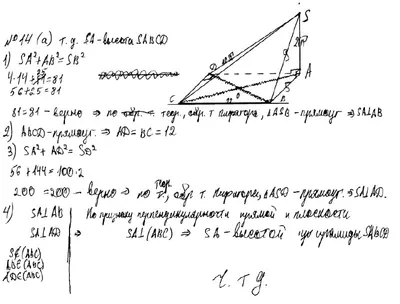 №14 (а) т.д. SA-высота SABCD
1) SA²+AB²=SB²
4·14+25=81
56+25=81
81=81 - верно ⇒ по обр. т. Пифагора, ΔASB-прямоуг ⇒ SA⊥AB
2) ABCD-прямоуг. ⇒ AD=BC=12
3) SA²+AD²=SD²
56+144=100·2
200=200 - верно ⇒ по обр. т. Пифагора, ΔASD-прямоуг. ⇒ SA⊥AD.
4) SA⊥AB По признаку перпендикулярности прямой и плоскости
SA⊥AD ⇒ SA⊥(ABC) ⇒ SA-высотой пирамиды SABCD
AB∈(ABC)
AD∈(ABC)
Ч.т.д.
S
D
A
C
B